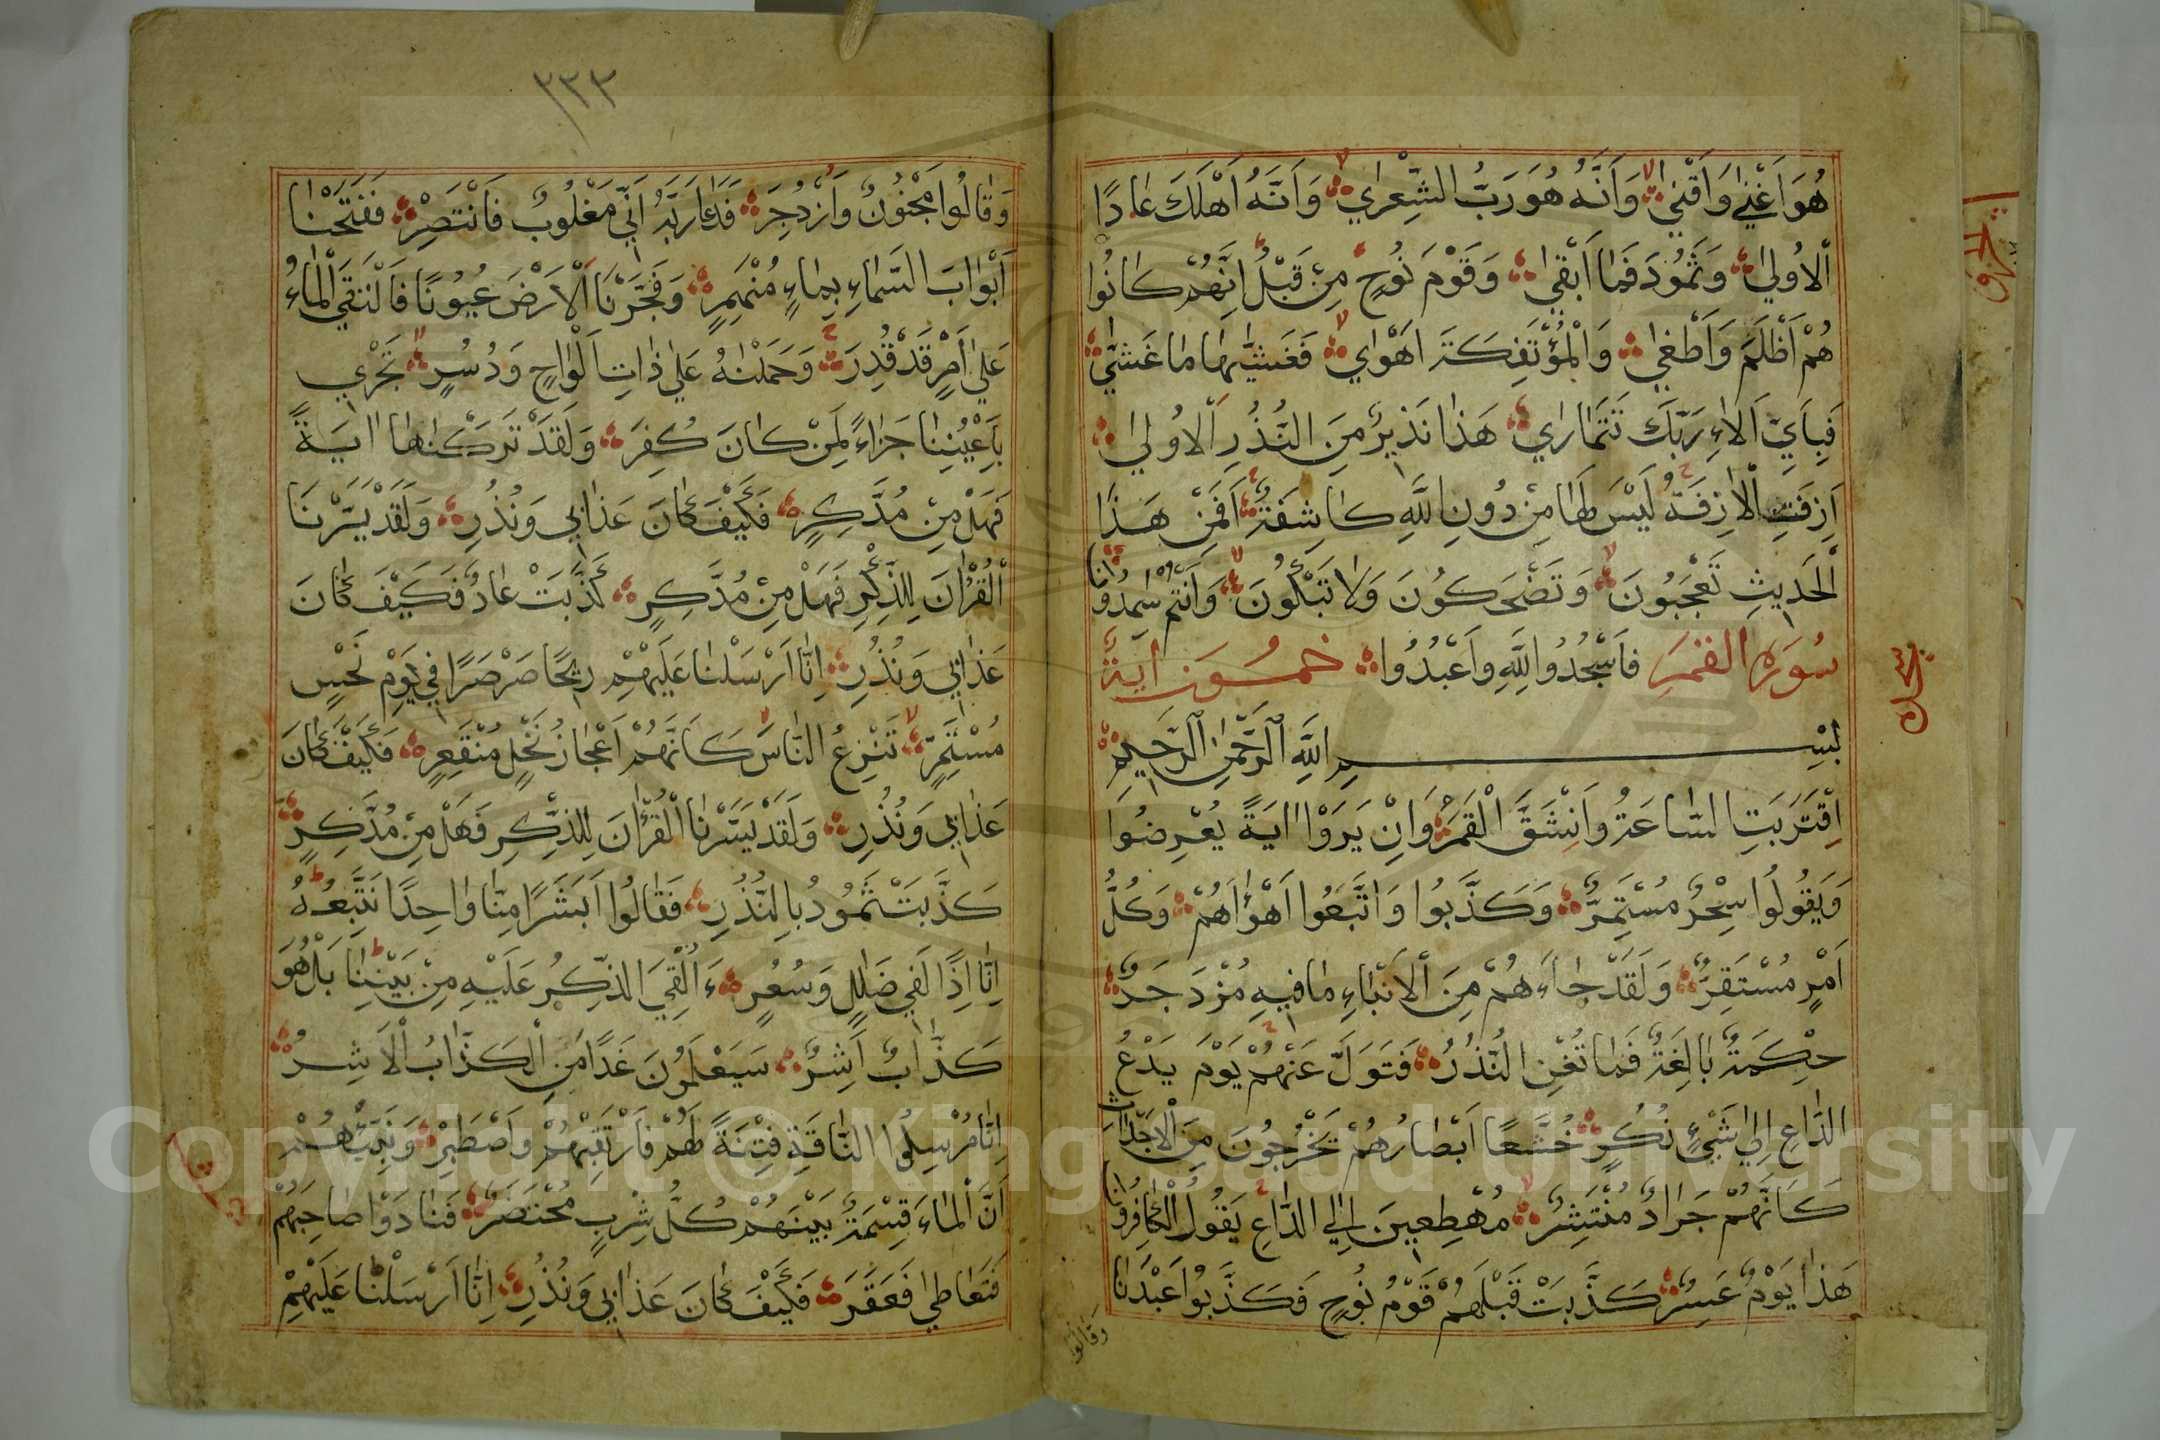 هُوَ اَغْنٰي وَاَقْنٰي وَاَنَّهُ هُوَ رَبُّ الشِّعْرٰي وَاَنَّهُ اَهْلَكَ عَادًا
اْلاُولٰي وَثَمُودَ فَمَا اَبْقٰي وَقَوْمَ نُوحٍ مِنْ قَبْلُ اِنَّهُمْ كَانُوا
هُمْ اَظْلَمَ وَاَطْغٰي وَالْمُؤْتَفِكَةَ اَهْوٰي فَغَشّٰيهَا مَا غَشّٰي
فَبِاَيِّ اَلاءِ رَبِّكَ تَتَمَارٰي هَذَا نَذِيرٌ مِنَ النُّذُرِ اْلاُولٰي
اَزِفَتِ اْلاٰزِفَةُ لَيْسَ لَهَا مِنْ دُونِ اللَّهِ كَاشِفَةٌ اَفَمِنْ هَذَا
الْحَدِيثِ تَعْجَبُونَ وَتَضْحَكُونَ وَلَا تَبْكُونَ وَاَنْتُمْ سَامِدُونَ
سُورَة القَمَرِ فَاسْجُدُوا لِلَّهِ وَاعْبُدُوا خمسون اية
بِسْمِ اللَّهِ الرَّحْمٰنِ الرَّحِيمِ
اِقْتَرَبَتِ السَّاعَةُ وَانْشَقَّ الْقَمَرُ وَاِنْ يَرَوْا اٰيَةً يُعْرِضُوا
وَيَقُولُوا سِحْرٌ مُسْتَمِرٌّ وَكَذَّبُوا وَاتَّبَعُوا اَهْوَاءَهُمْ وَكُلُّ
اَمْرٍ مُسْتَقِرٌّ وَلَقَدْ جَاءَهُمْ مِنَ اْلاَنْبَاءِ مَا فِيهِ مُزْدَجَرٌ
حِكْمَةٌ بَالِغَةٌ فَمَا تُغْنِ النُّذُرُ فَتَوَلَّ عَنْهُمْ يَوْمَ يَدْعُ
الدَّاعِ اِلٰي شَيْءٍ نُكُرٍ خُشَّعًا اَبْصَارُهُمْ يَخْرُجُونَ مِنَ اْلاَجْدَاثِ
كَاَنَّهُمْ جَرَادٌ مُنْتَشِرٌ مُهْطِعِينَ اِلَي الدَّاعِ يَقُولُ الْكَافِرُونَ
هَذَا يَوْمٌ عَسِرٌ كَذَّبَتْ قَبْلَهُمْ قَوْمُ نُوحٍ فَكَذَّبُوا عَبْدَنَا
وقالوا
٢٣٣
وَقَالُوا مَجْنُونٌ وَازْدُجِرَ فَدَعَا رَبَّهُ اَنِّي مَغْلُوبٌ فَانْتَصِرْ فَفَتَحْنَا
اَبْوَابَ السَّمَاءِ بِمَاءٍ مُنْهَمِرٍ وَفَجَّرْنَا اْلاَرْضَ عُيُونًا فَالْتَقَي الْمَاءُ
عَلٰي اَمْرٍ قَدْ قُدِرَ وَحَمَلْنٰهُ عَلٰي ذَاتِ اَلْوَاحٍ وَدُسُرٍ تَجْرِي
بِاَعْيُنِنَا جَزَاءً لِمَنْ كَانَ كُفِرَ وَلَقَدْ تَرَكْنَاهَا اٰيَةً
فَهَلْ مِنْ مُدَّكِرٍ فَكَيْفَ كَانَ عَذَابِي وَنُذُرِ وَلَقَدْ يَسَّرْنَا
الْقُرْاٰنَ لِلذِّكْرِ فَهَلْ مِنْ مُدَّكِرٍ كَذَّبَتْ عَادٌ فَكَيْفَ كَانَ
عَذَابِي وَنُذُرِ اِنَّا اَرْسَلْنَا عَلَيْهِمْ رِيحًا صَرْصَرًا فِي يَوْمِ نَحْسٍ
مُسْتَمِرٍّ تَنْزِعُ النَّاسَ كَاَنَّهُمْ اَعْجَازُ نَخْلٍ مُنْقَعِرٍ فَكَيْفَ كَانَ
عَذَابِي وَنُذُرِ وَلَقَدْ يَسَّرْنَا الْقُرْاٰنَ لِلذِّكْرِ فَهَلْ مِنْ مُدَّكِرٍ
كَذَّبَتْ ثَمُودُ بِالنُّذُرِ فَقَالُوا اَبَشَرًا مِنَّا وَاحِدًا نَتَّبِعُهُ
اِنَّا اِذًا لَفِي ضَلٰلٍ وَسُعُرٍ ءَاُلْقِيَ الذِّكْرُ عَلَيْهِ مِنْ بَيْنِنَا بَلْ هُوَ
كَذَّابٌ اَشِرٌ سَيَعْلَمُونَ غَدًا مَنِ الْكَذَّابُ اْلاَشِرُ
اِنَّا مُرْسِلُوا النَّاقَةِ فِتْنَةً لَهُمْ فَارْتَقِبْهُمْ وَاصْطَبِرْ وَنَبِّئْهُمْ
اَنَّ الْمَاءَ قِسْمَةٌ بَيْنَهُمْ كُلُّ شِرْبٍ مُحْتَضَرٌ فَنَادَوْا صَاحِبَهُمْ
فَتَعَاطٰي فَعَقَرَ فَكَيْفَ كَانَ عَذَابِي وَنُذُرِ اِنَّا اَرْسَلْنَا عَلَيْهِمْ
Copyright © King Saud University